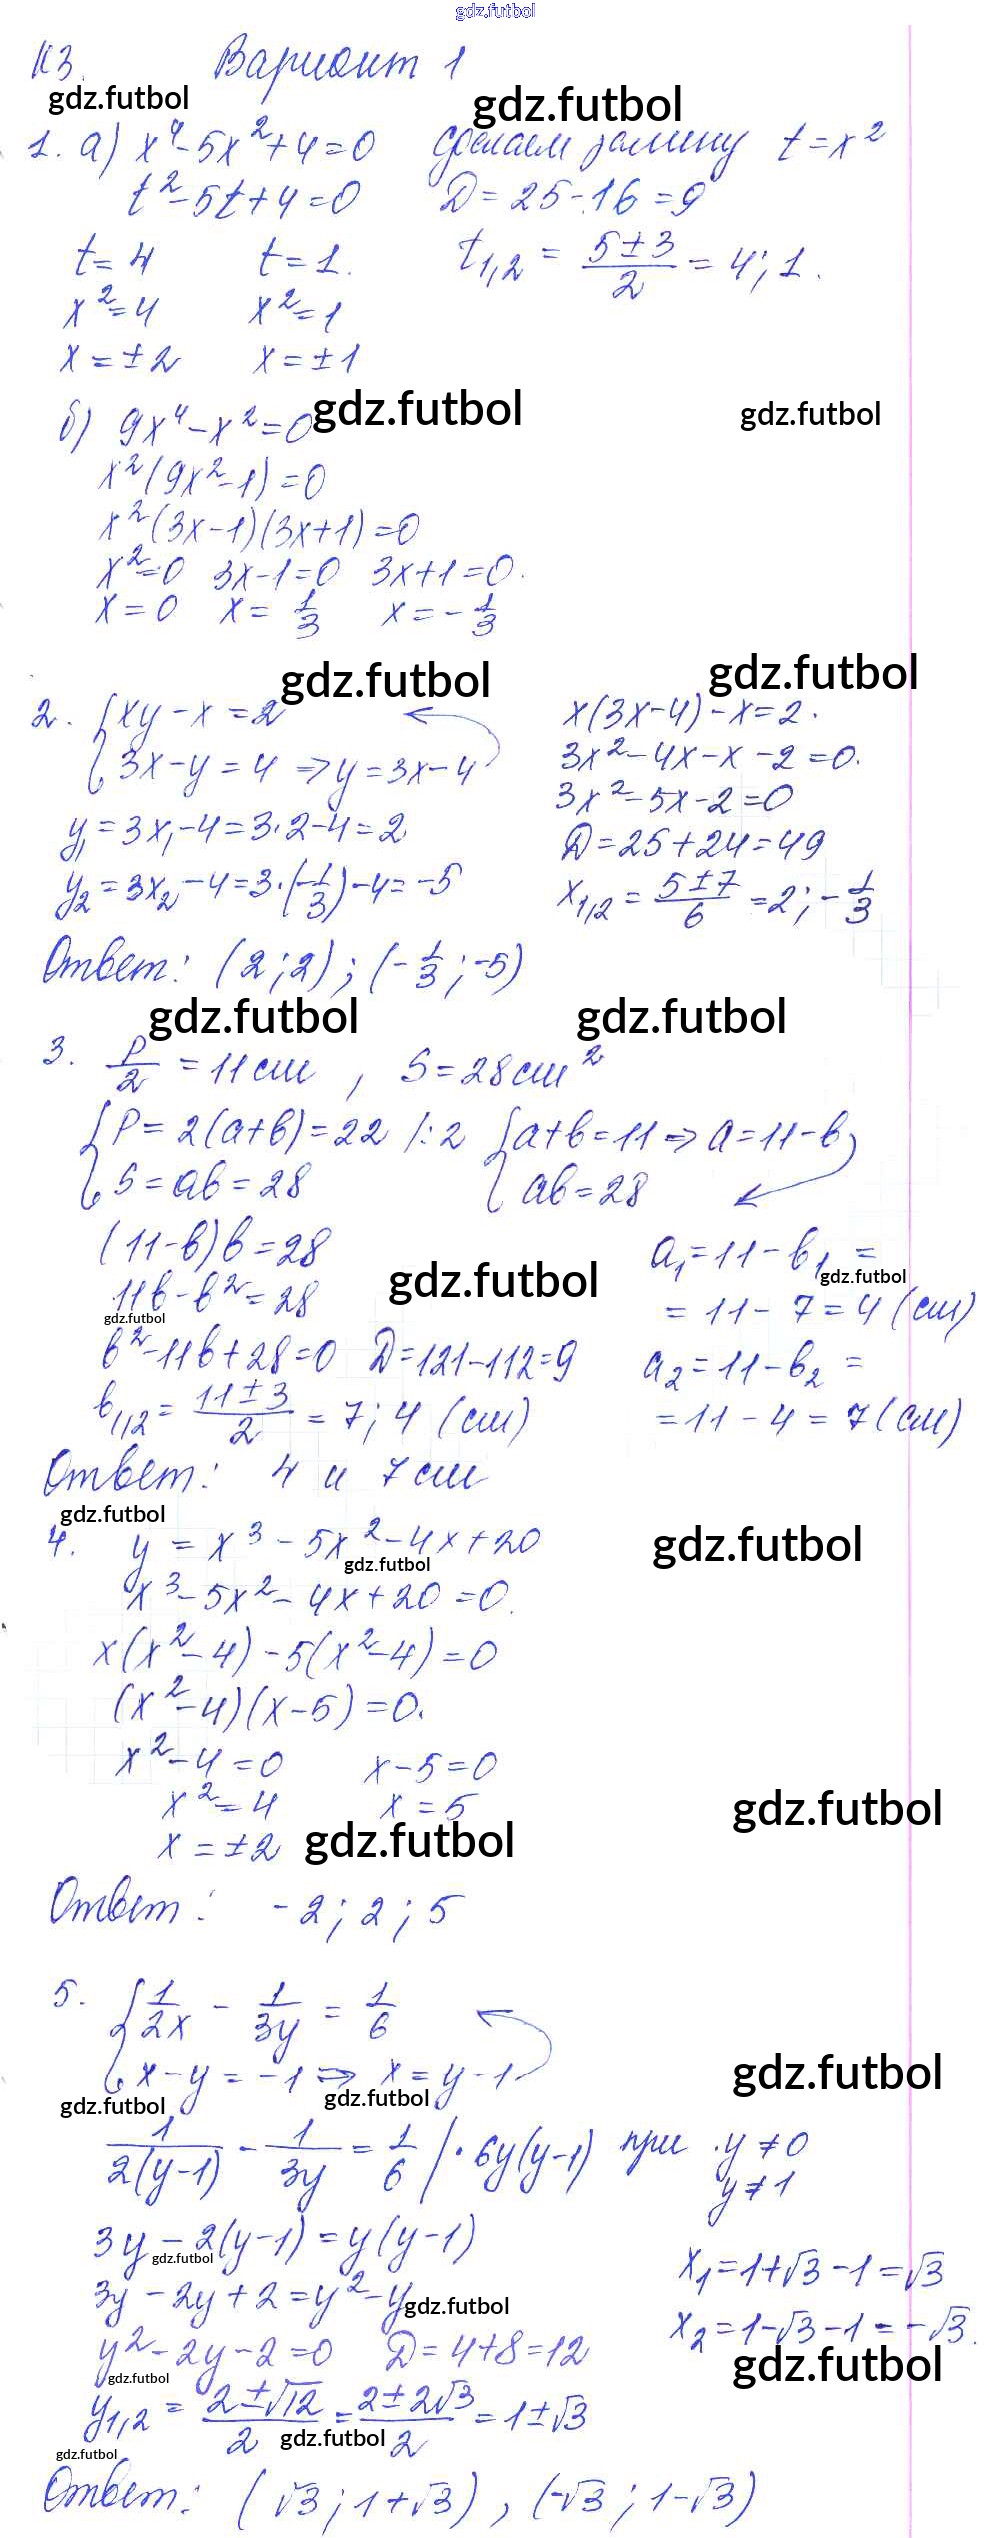 gdz.futbol
К3. Вариант 1
gdz.futbol gdz.futbol
1. а) x⁴-5x²+4=0 сделаем замену t=x²
t²-5t+4=0 D=25-16=9
t=4 t=1. t₁,₂ = (5±3)/2 = 4; 1.
x²=4 x²=1
x=±2 x=±1
б) 9x⁴-x²=0 gdz.futbol gdz.futbol
x²(9x²-1)=0
x²(3x-1)(3x+1)=0
x²=0 3x-1=0 3x+1=0.
x=0 x=1/3 x=-1/3
gdz.futbol gdz.futbol
2. { xy-x=2 x(3x-4)-x=2.
3x-y=4 => y=3x-4 3x²-4x-x-2=0.
3x²-5x-2=0
y₁=3x₁-4=3·2-4=2 D=25+24=49
y₂=3x₂-4=3·(-1/3)-4=-5 x₁,₂=(5±7)/6=2; -1/3
Ответ: (2;2); (-1/3;-5)
gdz.futbol gdz.futbol
3. P/2 = 11 см, S=28 см²
{ P=2(a+b)=22 |:2 { a+b=11 => a=11-b
S=ab=28 ab=28
(11-b)b=28 a₁=11-b₁=
gdz.futbol gdz.futbol
11b-b²=28 =11-7=4 (см)
gdz.futbol
b²-11b+28=0 D=121-112=9 a₂=11-b₂=
b₁,₂=(11±3)/2=7; 4 (см) =11-4=7 (см)
Ответ: 4 и 7 см
gdz.futbol
4. y=x³-5x²-4x+20 gdz.futbol
gdz.futbol
x³-5x²-4x+20=0.
x(x²-4)-5(x²-4)=0
(x²-4)(x-5)=0.
x²-4=0 x-5=0
x²=4 x=5 gdz.futbol
x=±2 gdz.futbol
Ответ: -2; 2; 5
5. { 1/2x - 1/3y = 1/6
x-y=-1 => x=y-1 gdz.futbol
gdz.futbol gdz.futbol
1/2(y-1) - 1/3y = 1/6 |·6y(y-1) при y≠0
y≠1
3y-2(y-1)=y(y-1)
gdz.futbol x₁=1+√3-1=√3
3y-2y+2=y²-y gdz.futbol
x₂=1-√3-1=-√3.
y²-2y-2=0 D=4+8=12 gdz.futbol
gdz.futbol
y₁,₂=(2±√12)/2=(2±2√3)/2=1±√3
gdz.futbol
gdz.futbol
Ответ: (√3;1+√3), (-√3;1-√3)